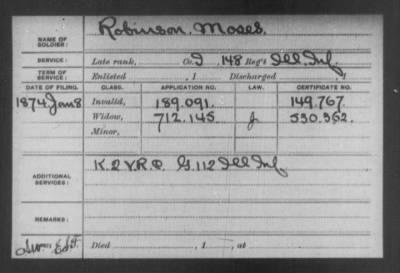 NAME OF SOLDIER: Robinson, Moses.
SERVICE: Late rank, Co. I, 148 Reg't Ill. Inf.
TERM OF SERVICE: Enlisted , 1 Discharged , 1
DATE OF FILING. CLASS. APPLICATION NO. LAW. CERTIFICATE NO.
1874 Jan 8 Invalid, 189.091. 149.767.
Widow, 712.145 J 530.362.
Minor,
ADDITIONAL SERVICES: K. 2 V.R.C. G. 112 Ill Inf
REMARKS:
Died , 1 , at